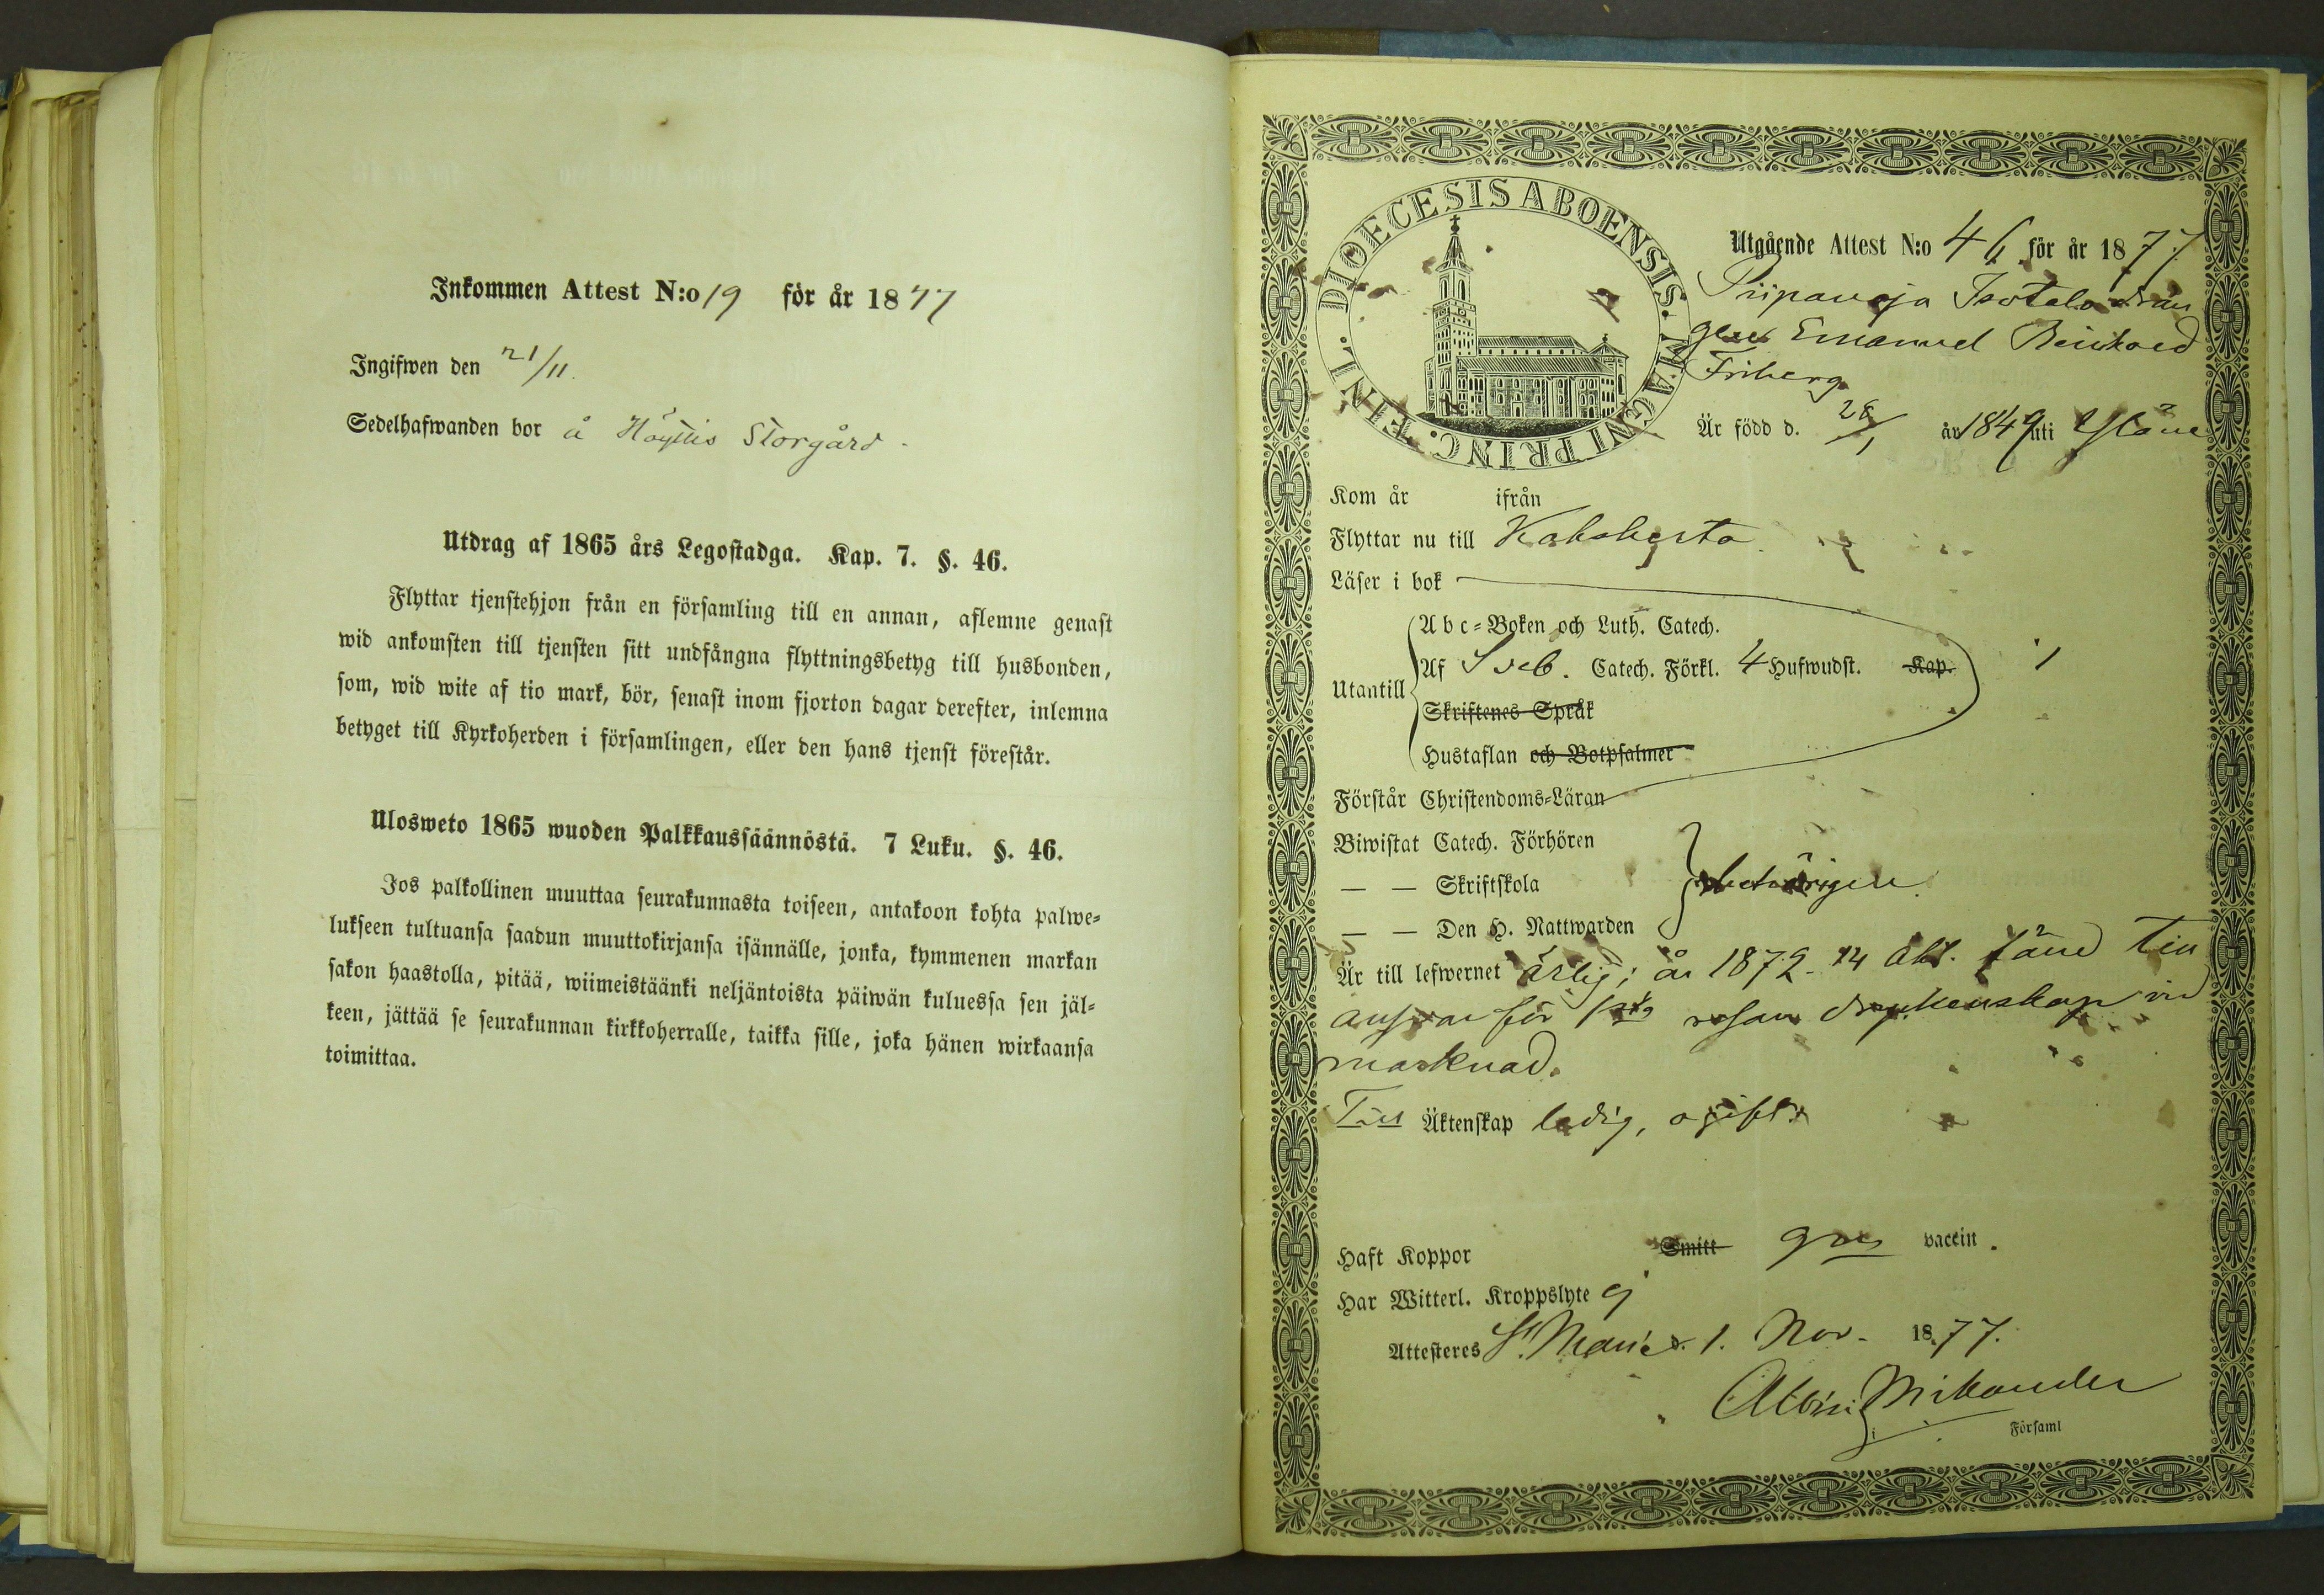 Inkommen Attest N:o 19 för år 1877
Ingifwen den 21/11.
Sedelhafwanden bor å Höyttis Storgård.
Utdrag af 1865 års Legostadga. Kap. 7. §. 46.
Flyttar tjenstehjon från en församling till en annan, aflemne genast
wid ankomsten till tjensten sitt undfångna flyttningsbetyg till husbonden,
som, wid wite af tio mark, bör, senast inom fjorton dagar derefter, inlemna
betyget till Kyrkoherden i församlingen, eller den hans tjenst förestår.
Ulosweto 1865 wuoden Palkkaussäännöstä. 7 Luku. §. 46.
Jos palkollinen muuttaa seurakunnasta toiseen, antakoon kohta palwe=
lukseen tultuansa saadun muuttokirjansa isännälle, jonka, kymmenen markan
sakon haastolla, pitää, wiimeistäänki neljäntoista päiwän kuluessa sen jäl=
keen, jättää se seurakunnan kirkkoherralle, taikka sille, joka hänen wirkaansa
toimittaa.
DIOECESIS ABOENSIS. MAGNI PRINC. FINL.
Utgående Attest N:o 46 för år 1877.
Piipanoja Isotalo drän
gen Emanuel Reinhold
Friberg
Är född d. 28/1 år 1849 uti Yläne
Kom år ifrån
Flyttar nu till Kakskerta.
Läser i bok
Abc=Boken och Luth. Catech.
Utantill Af Sveb. Catech. Förkl. 4 Hufwudst. Kap. 1
Skriftenes Språk
Hustaflan och Botpsalmer
Förstår Christendoms=Läran
Biwistat Catech. Förhören
— — Skriftskola behörigen.
— — Den H. Nattwarden
Är till lefwernet ärlig; år 1872 14 Okt. fäld till
answar för 1sta resan dryckenskap vid
marknad.
Till Äktenskap ledig, ogift.
Haft Koppor Smitt gm vaccin.
Har Witterl. Kroppslyte ej
Attesteres St Marie d. 1. Nov. 1877.
Albin Mikander
i Församl